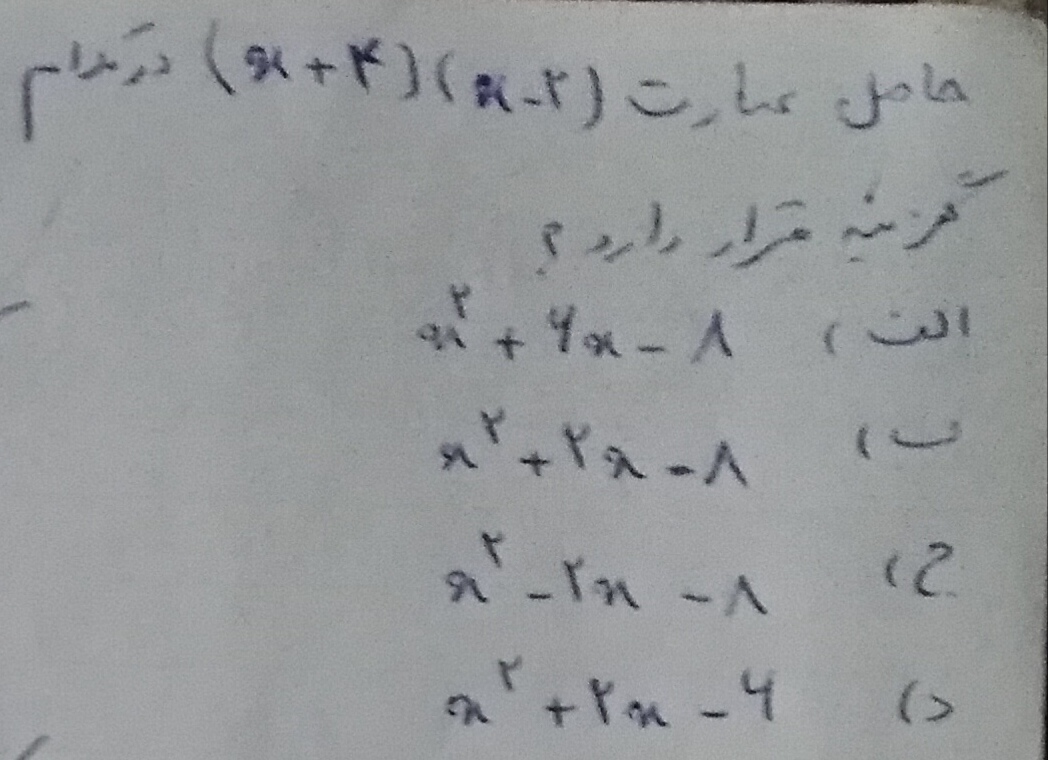 حاصل عبارت (x-۲)(x+۴) در کدام
گزینه قرار دارد ؟
الف) x² + ۶x - ۸
ب) x² + ۲x - ۸
ج) x² - ۲x - ۸
د) x² + ۲x - ۶